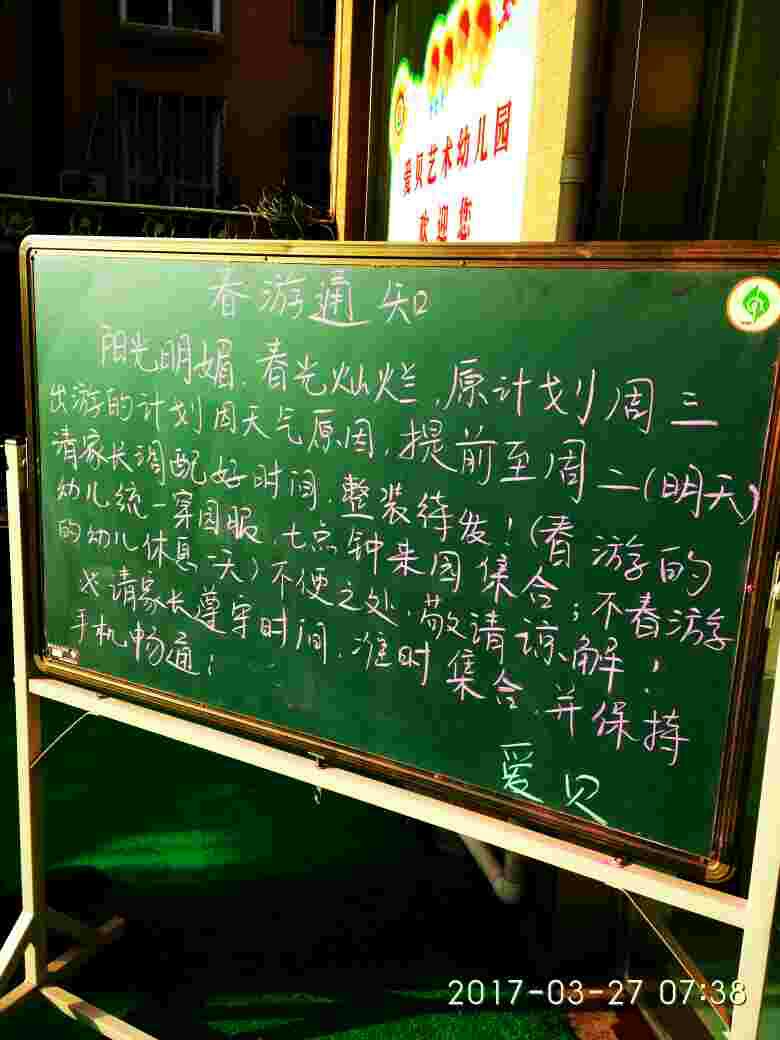 爱贝艺术幼儿园
欢迎您
春游通知
阳光明媚,春光灿烂,原计划周三
出游的计划因天气原因,提前至周二(明天)
请家长调配好时间,整装待发!(春游的
幼儿统一穿园服,七点钟来园集合;不春游
的幼儿休息一天)不便之处,敬请谅解!
※请家长遵守时间,准时集合,并保持
手机畅通!
爱贝
2017-03-27 07:38